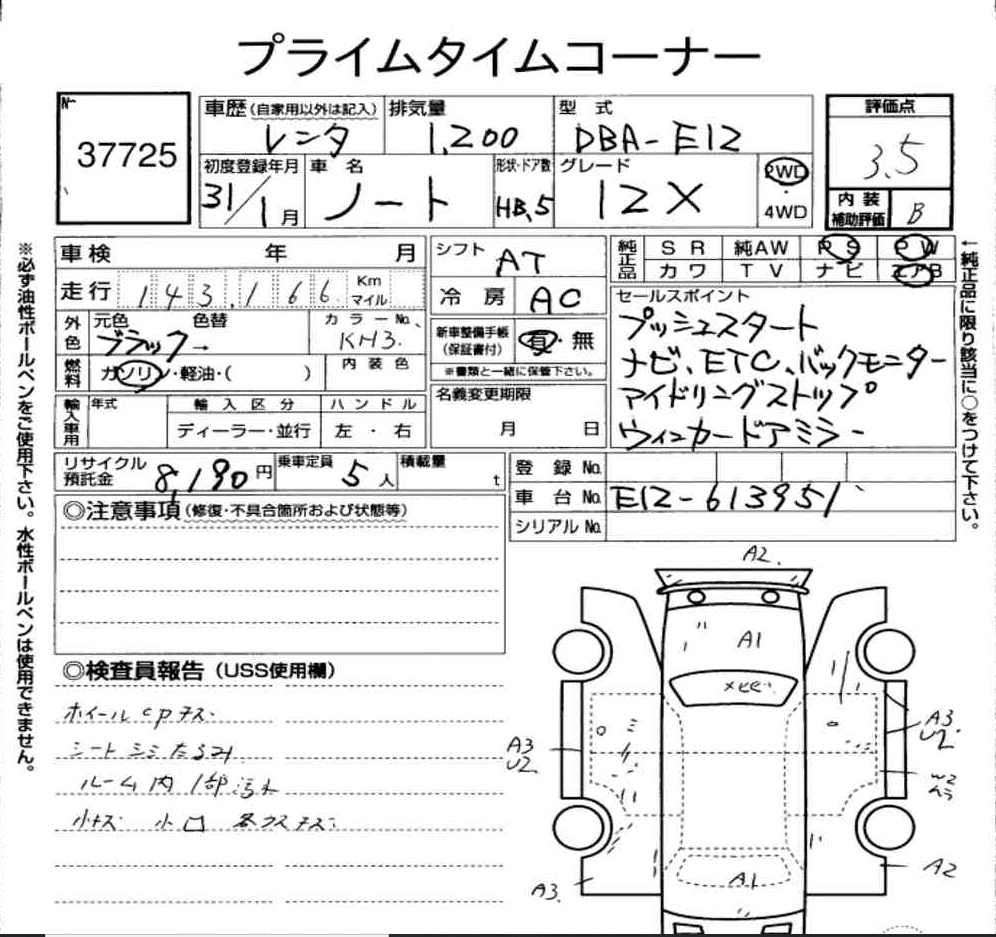 プライムタイムコーナー
No.
37725
車歴(自家用以外は記入)
レンタ
排気量
1,200
型 式
DBA-E12
評価点
3.5
初度登録年月
31/1月
車 名
ノート
形状・ドア数
HB,5
グレード
12X
2WD
・
4WD
内装
補助評価
B
車検 年 月
走行 143,166 Km マイル
外色
元色 色替
ブラック→
カラーNo.
KH3.
燃料
ガソリン・軽油・( )
内装色
輸入車用
年式
輸入区分
ディーラー・並行
ハンドル
左・右
シフト
AT
冷房
AC
新車整備手帳
(保証書付)
有・無
※書類と一緒に保管下さい。
名義変更期限
月 日
純正品
SR 純AW PS PW
カワ TV ナビ エアB
セールスポイント
プッシュスタート
ナビ、ETC、バックモニター
アイドリングストップ
ウィンカードアミラー
リサイクル
預託金
8,190円
乗車定員
5人
積載量
t
登録No.
車台No.
E12-613951
シリアルNo.
◎注意事項(修復・不具合箇所および状態等)
◎検査員報告(USS使用欄)
ホイールcpキズ
シートシミたるみ
ルーム内1部汚れ
小キズ 小凹
A2.
A1
A3
U2
A3
U2
W2
A2
A3.
A1
※必ず油性ボールペンをご使用下さい。水性ボールペンは使用できません。
←純正品に限り該当に○をつけて下さい。